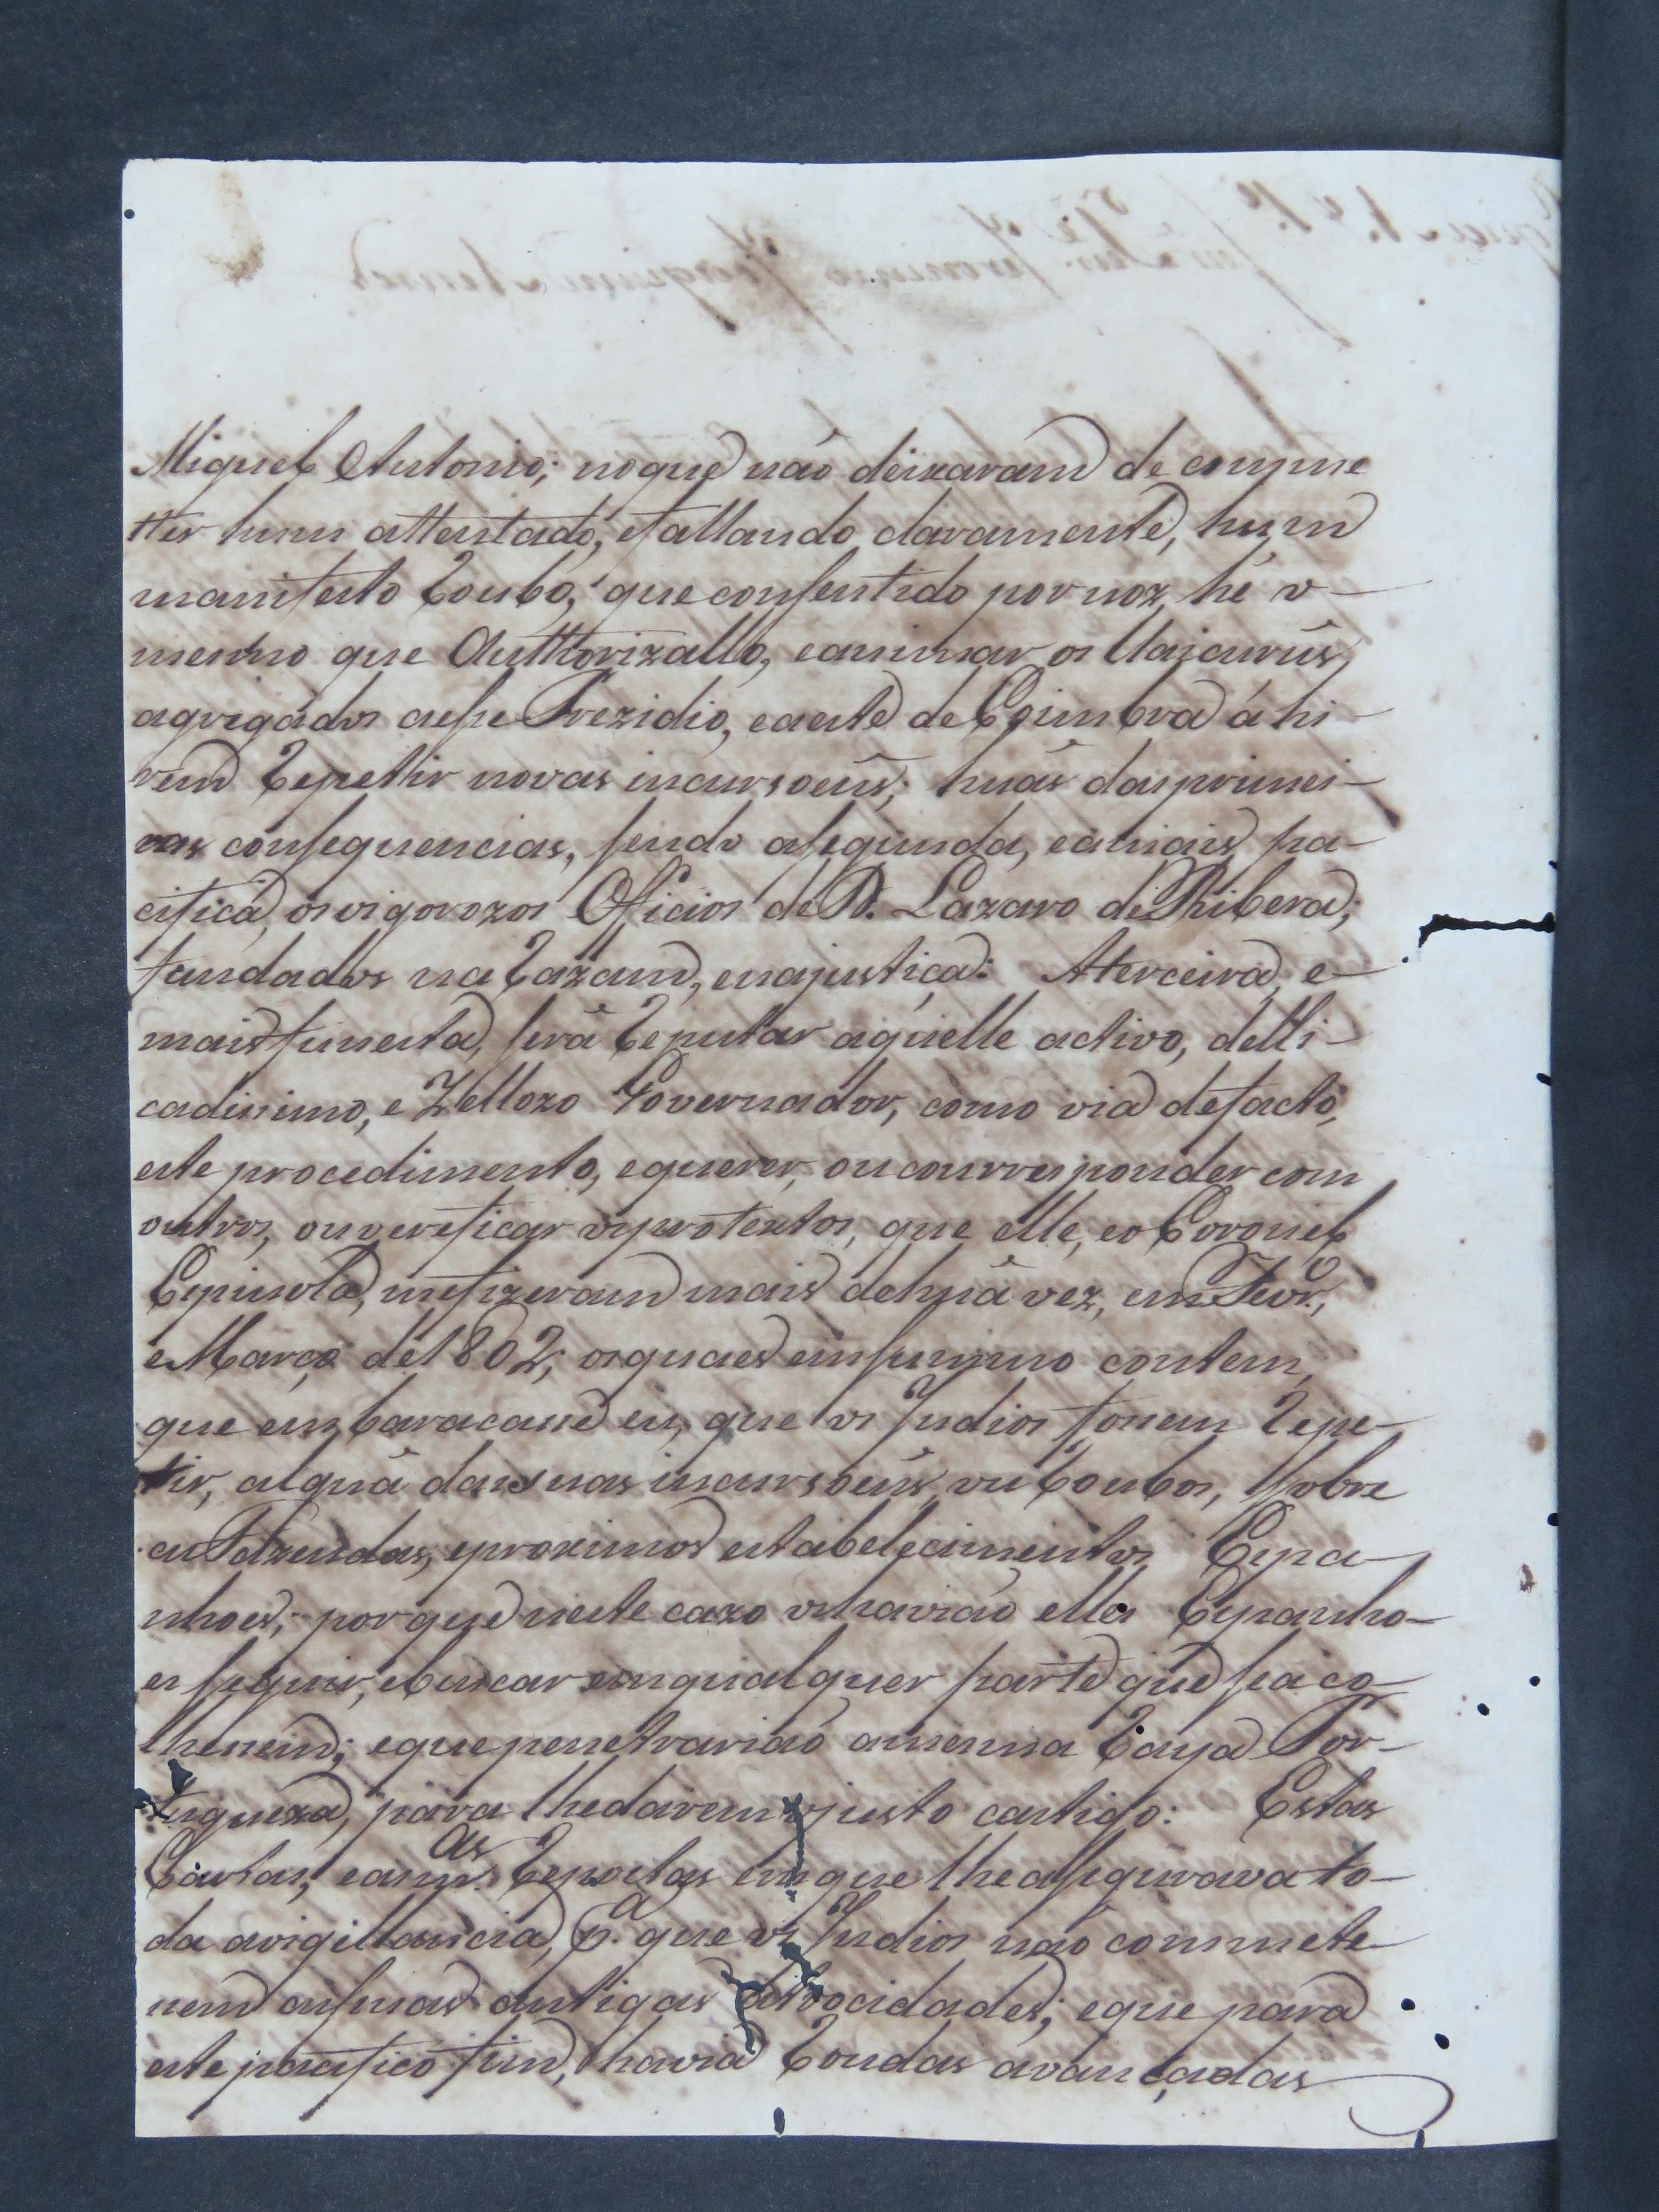 Miguel Antonio; no que não deixaram de comme
tter hum attentado, e fallando claramente, hum
manifesto Roubo, que consentido por noz, hé o
mesmo que Authorizallo, e animar os Uaicurús,
agregádos a esse Prezidio, e a este de Coimbra á hi-
rem Repettir novas incursoens; huás das primei-
ras consequencias, sendo a segunda, e a mais pa-
cifica, os vigorozos Oficios de D. Lazaro de Ribera;
fundados na Razam, e na justiça: A terceira, e
mais funesta, será Reputar aquelle activo, delli-
cadissimo, e Zellozo Governador, como via de facto,
este procedimento, e querer, ou courresponder com
outros, ou vereficar os protextos, que elle, e o Coronel
Espinola, me fizeram mais de huá vez, em Fevr.º,
e Março de 1802; os quaes em summo contem,
que embaracace eu, que os Indios fossem Repe-
tir, alguá das suas incursoens, ou Roubos, sobre
as Fazendas, e proximos estabelecimentos Espa-
nhoes; por que neste cazo os havião elles Espanho-
es seguir, e buscar em qualquer parte que se aco-
lhessem; e que penetrarião a mesma Raya Por-
tugueza, para lhe darem o justo castigo: Estas
Cartas, e as m.as Repostas em que lhe assegurava to-
da a vigillancia, p.a que os Indios não commete-
ssem as suas antigas atrocidades; e que para
este pacifico fim, havia Rondas avançadas